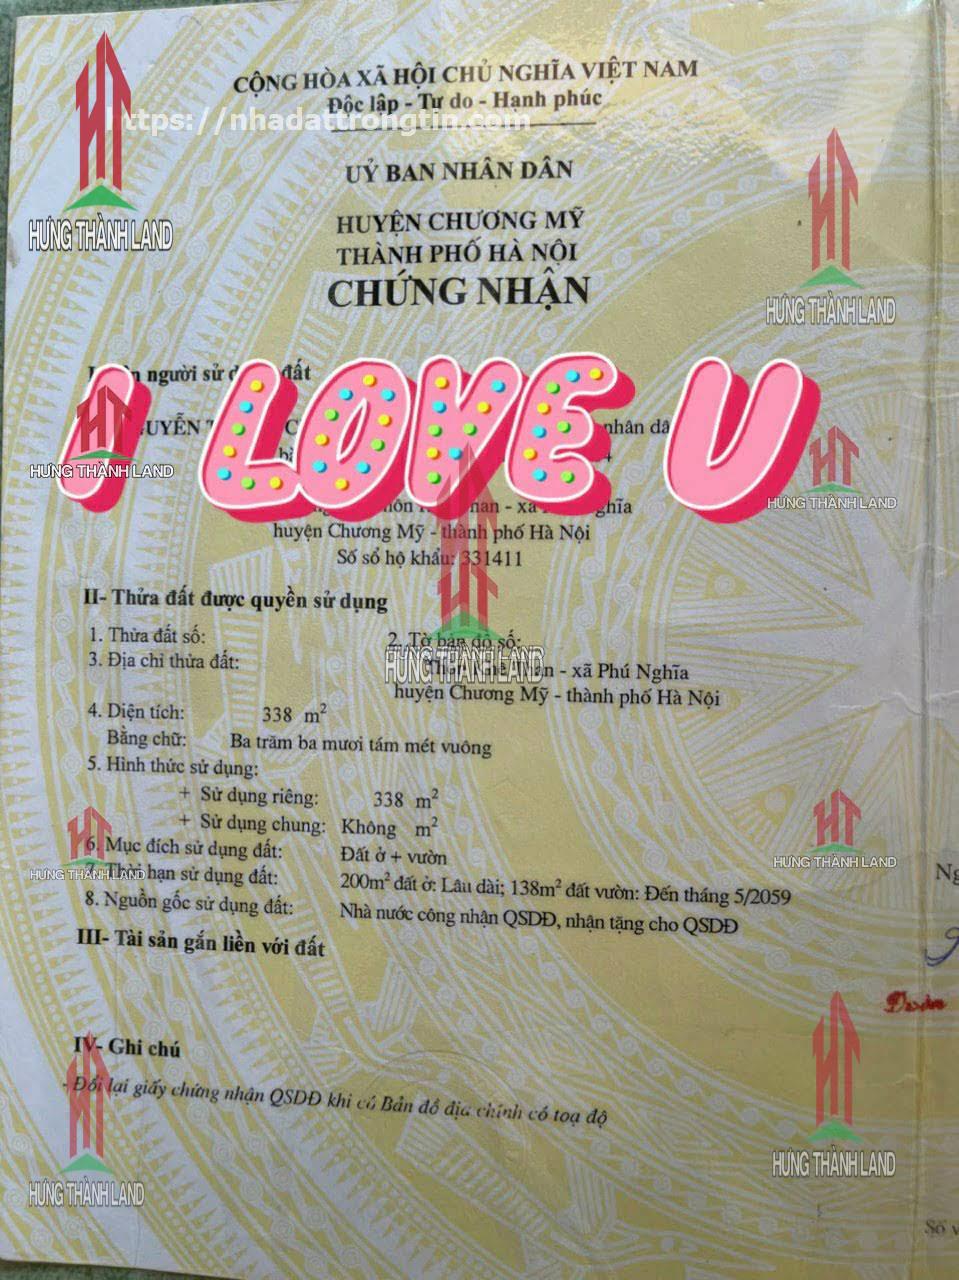 CỘNG HÒA XÃ HỘI CHỦ NGHĨA VIỆT NAM
Độc lập - Tự do - Hạnh phúc
https://nhadattrongtin.com
UỶ BAN NHÂN DÂN
HUYỆN CHƯƠNG MỸ
THÀNH PHỐ HÀ NỘI
CHỨNG NHẬN
HƯNG THÀNH LAND
HƯNG THÀNH LAND
người sử đất
I LOVE U
nhân dâ
HƯNG THÀNH LAND
HƯNG THÀNH LAND
- xã
huyện Chương Mỹ - thành phố Hà Nội
Số sổ hộ khẩu: 331411
II- Thửa đất được quyền sử dụng
1. Thửa đất số: 2. Tờ bản đồ số:
HƯNG THÀNH LAND
3. Địa chỉ thửa đất: - xã Phú Nghĩa
huyện Chương Mỹ - thành phố Hà Nội
4. Diện tích: 338 m²
Bằng chữ: Ba trăm ba mươi tám mét vuông
5. Hình thức sử dụng:
+ Sử dụng riêng: 338 m²
+ Sử dụng chung: Không m²
6. Mục đích sử dụng đất: Đất ở + vườn
HƯNG THÀNH LAND
HƯNG THÀNH LAND
7. Thời hạn sử dụng đất: 200m² đất ở: Lâu dài; 138m² đất vườn: Đến tháng 5/2059
8. Nguồn gốc sử dụng đất: Nhà nước công nhận QSDĐ, nhận tặng cho QSDĐ
III- Tài sản gắn liền với đất
Ng
Đoàn
IV- Ghi chú
- Đổi lại giấy chứng nhận QSDĐ khi có Bản đồ địa chính có toạ độ
HƯNG THÀNH LAND
HƯNG THÀNH LAND
Số v